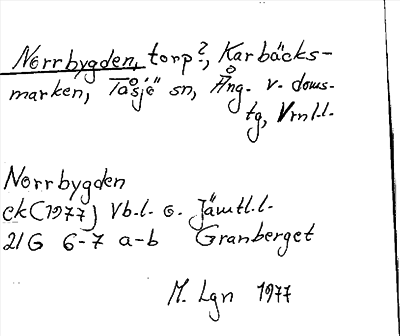 Norrbygden, torp?, Karbäcks-
marken, Tåsjö sn, Ång. v. doms-
tg, Vrnl.l.
Norrbygden
ek(1977) Vb.l. o. Jämtl.l.
21G 6-7 a-b Granberget
M. Lgn 1977